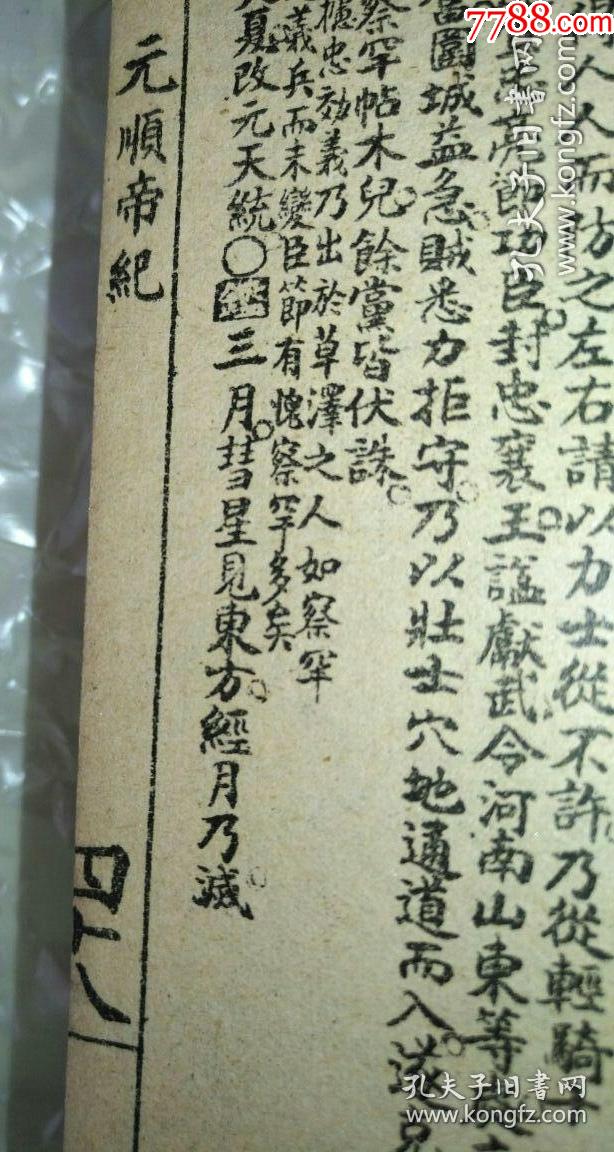 人人而防之左右請以力士從不許乃從輕騎
節功臣封忠襄王謚獻武令河南山東等
圍城益急賊悉力拒守乃以壯士穴地通道而入
察罕帖木兒餘黨皆伏誅
忠効義乃出於草澤之人如察罕
義兵而未變臣節有愧察罕多矣
夏改元天統〇三月彗星見東方經月乃滅
元順帝紀
四十八
7788.com
孔夫子旧书网
孔夫子旧书网
www.kongfz.com